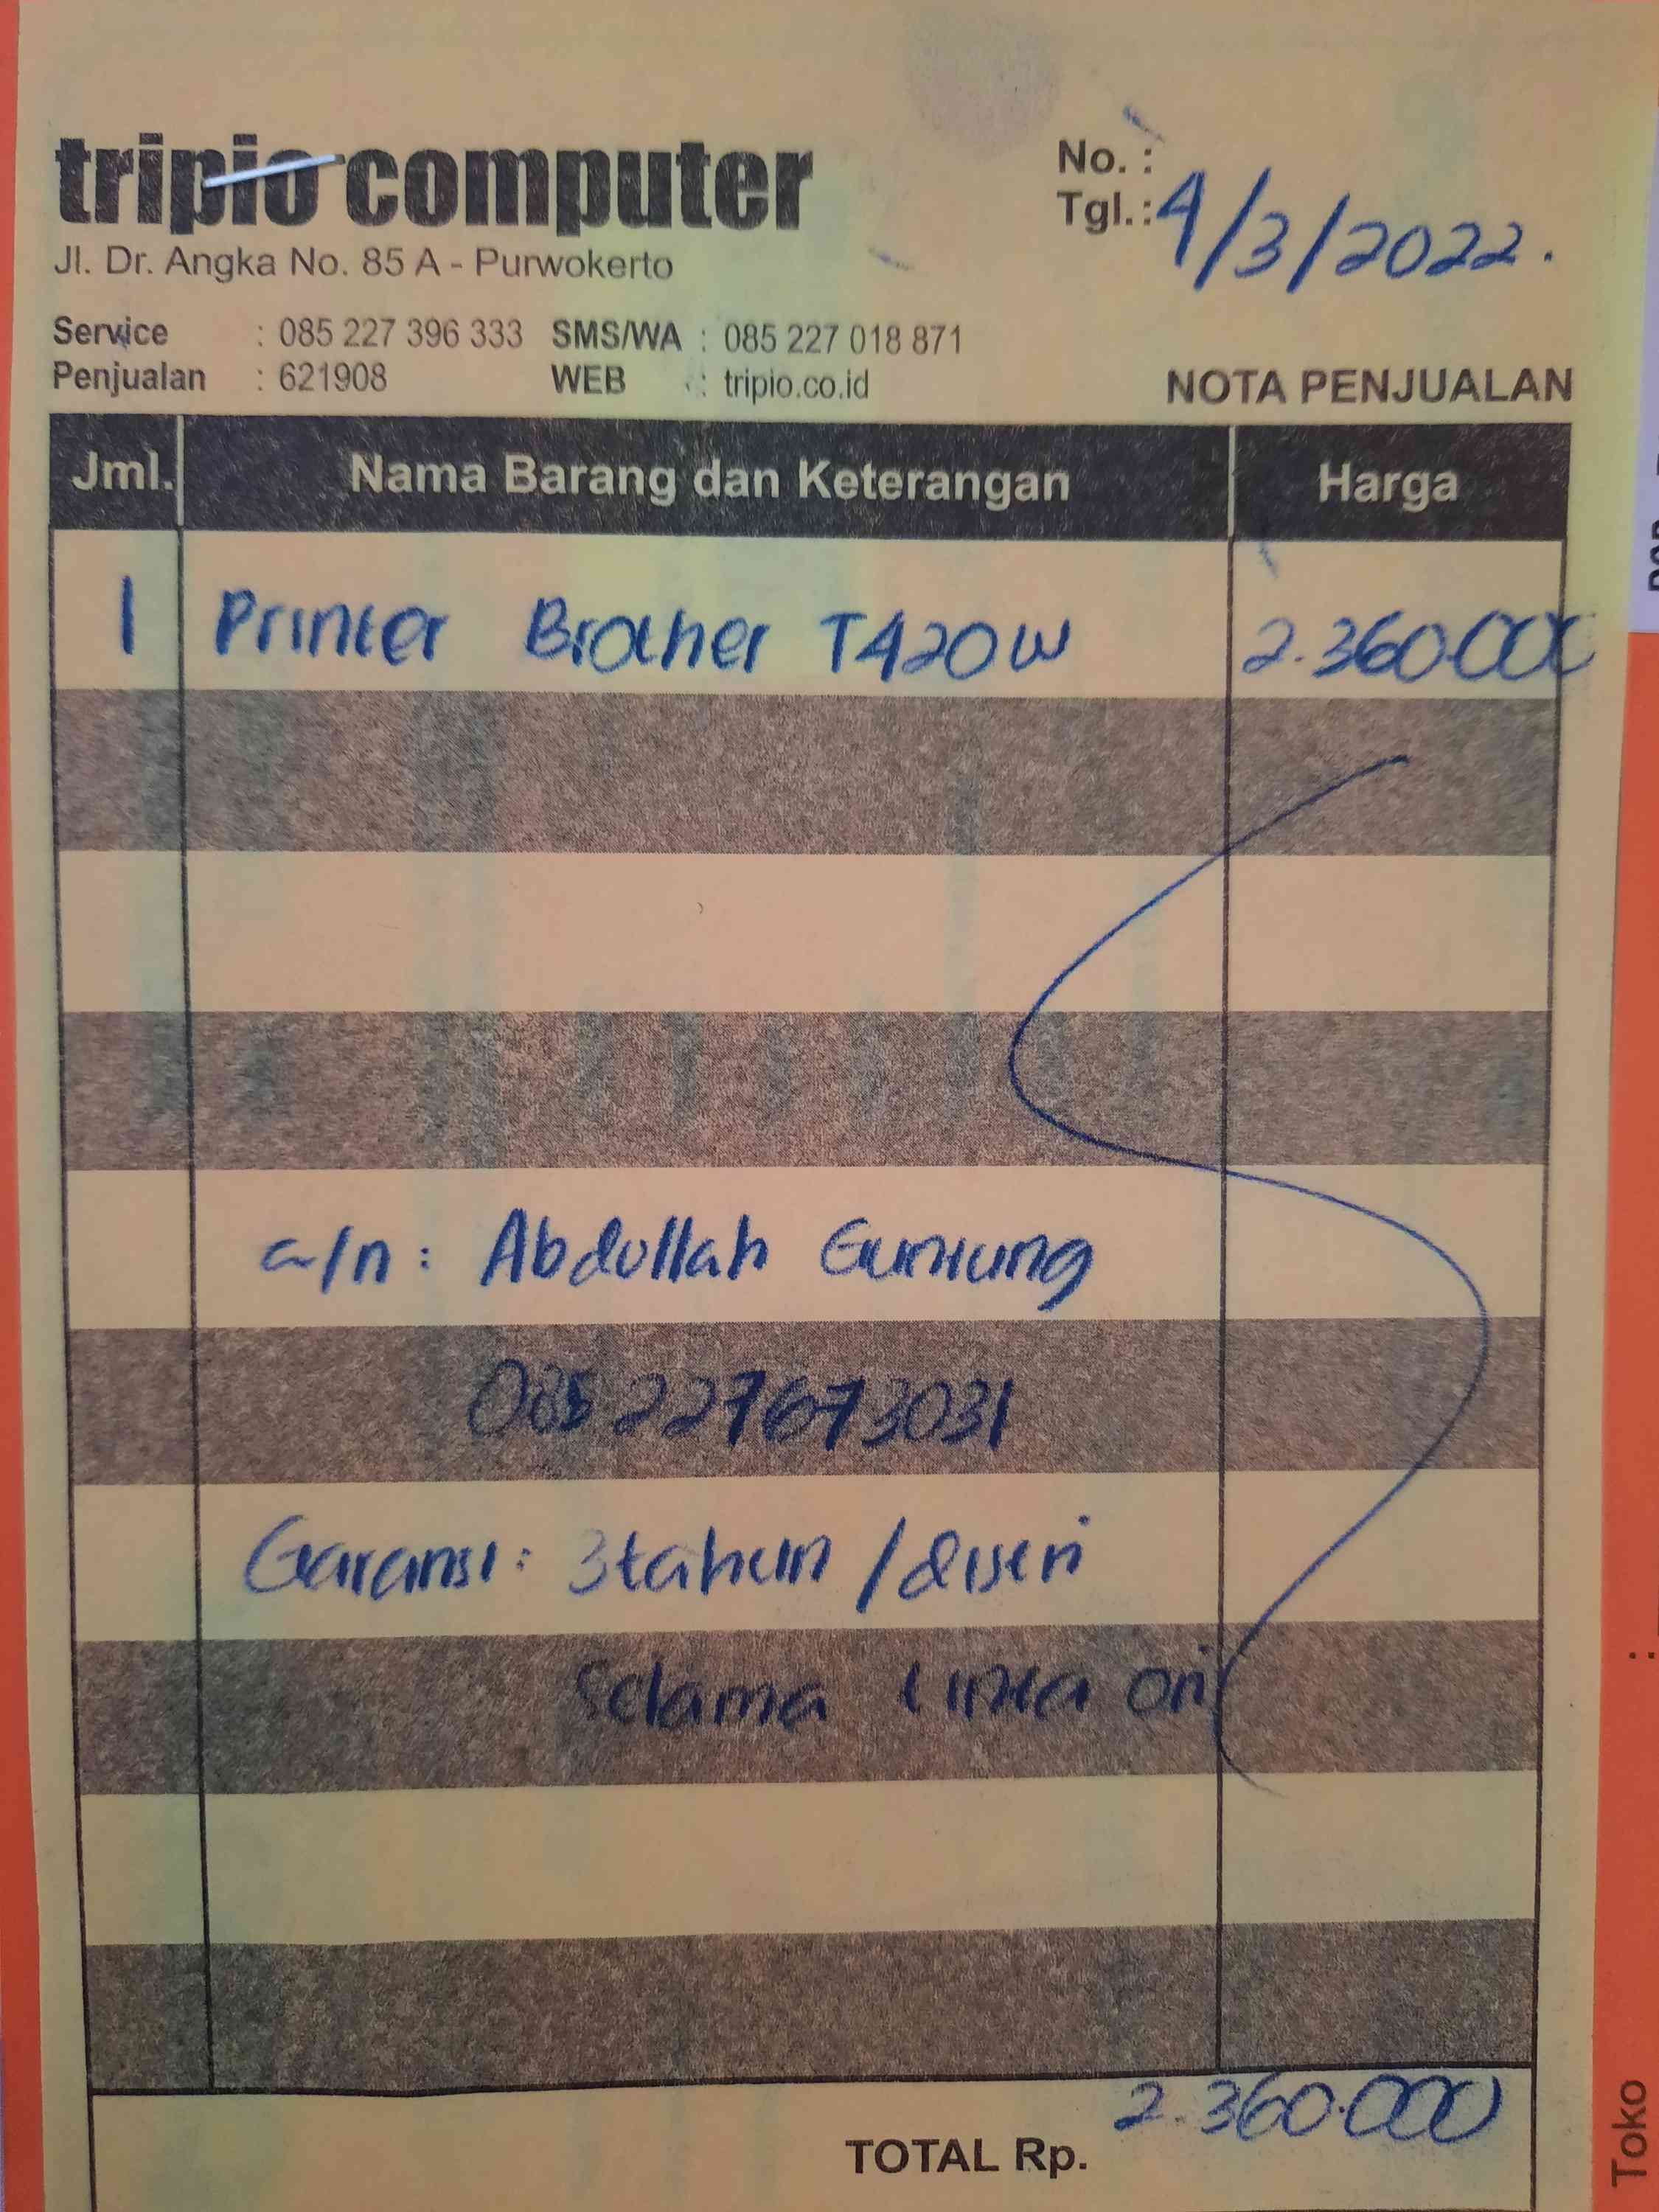 tripio computer
Jl. Dr. Angka No. 85 A - Purwokerto
No. :
Tgl.: 4/3/2022.
Service : 085 227 396 333 SMS/WA : 085 227 018 871
Penjualan : 621908 WEB : tripio.co.id
NOTA PENJUALAN
Jml. Nama Barang dan Keterangan Harga
1 Printer Brother T420W 2.360.000
a/n : Abdullah Guntung
085 227673031
Garansi : 3 tahun / diseri
Selama tinta ori
TOTAL Rp. 2.360.000
Toko